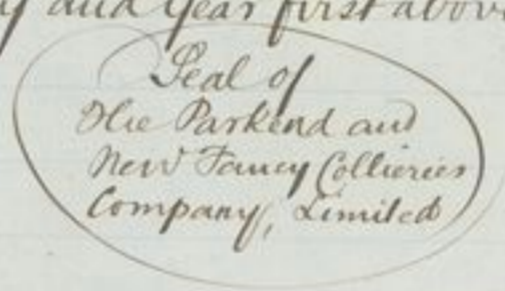 and Year first above
Seal of
The Parkend and
New Fancy Collieries
Company, Limited